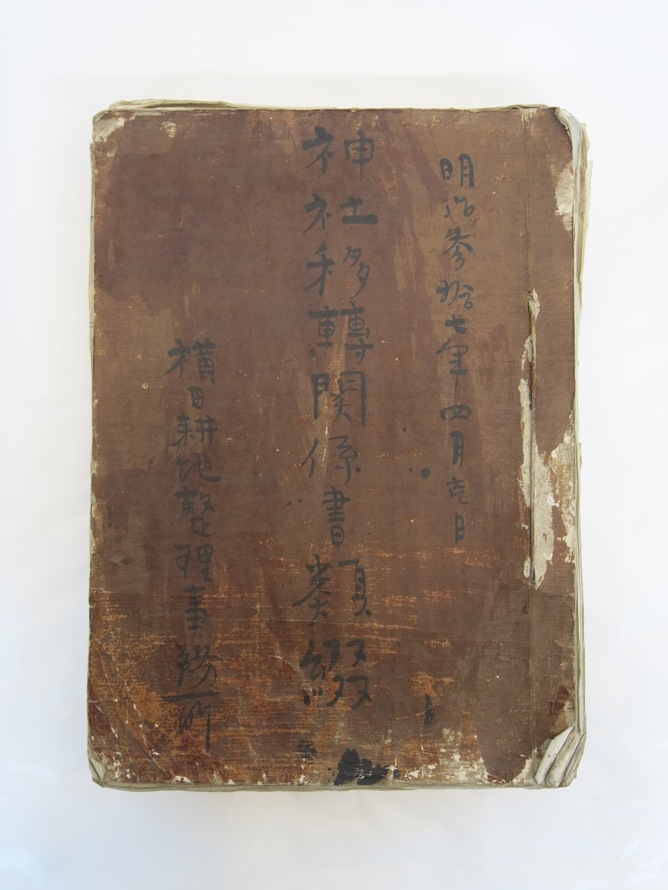 明治参拾七年四月壱日
神社移轉関係書類綴
横日耕地整理事務所